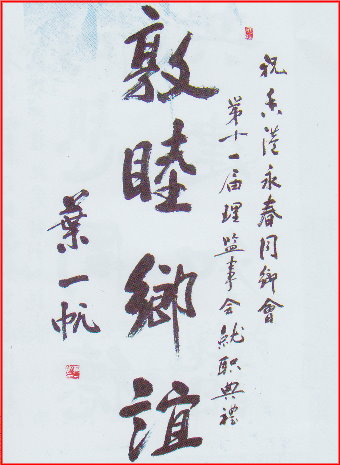 祝香港永春同鄉會
第十一届理監事会就职典禮
敦睦鄉誼
葉一帆